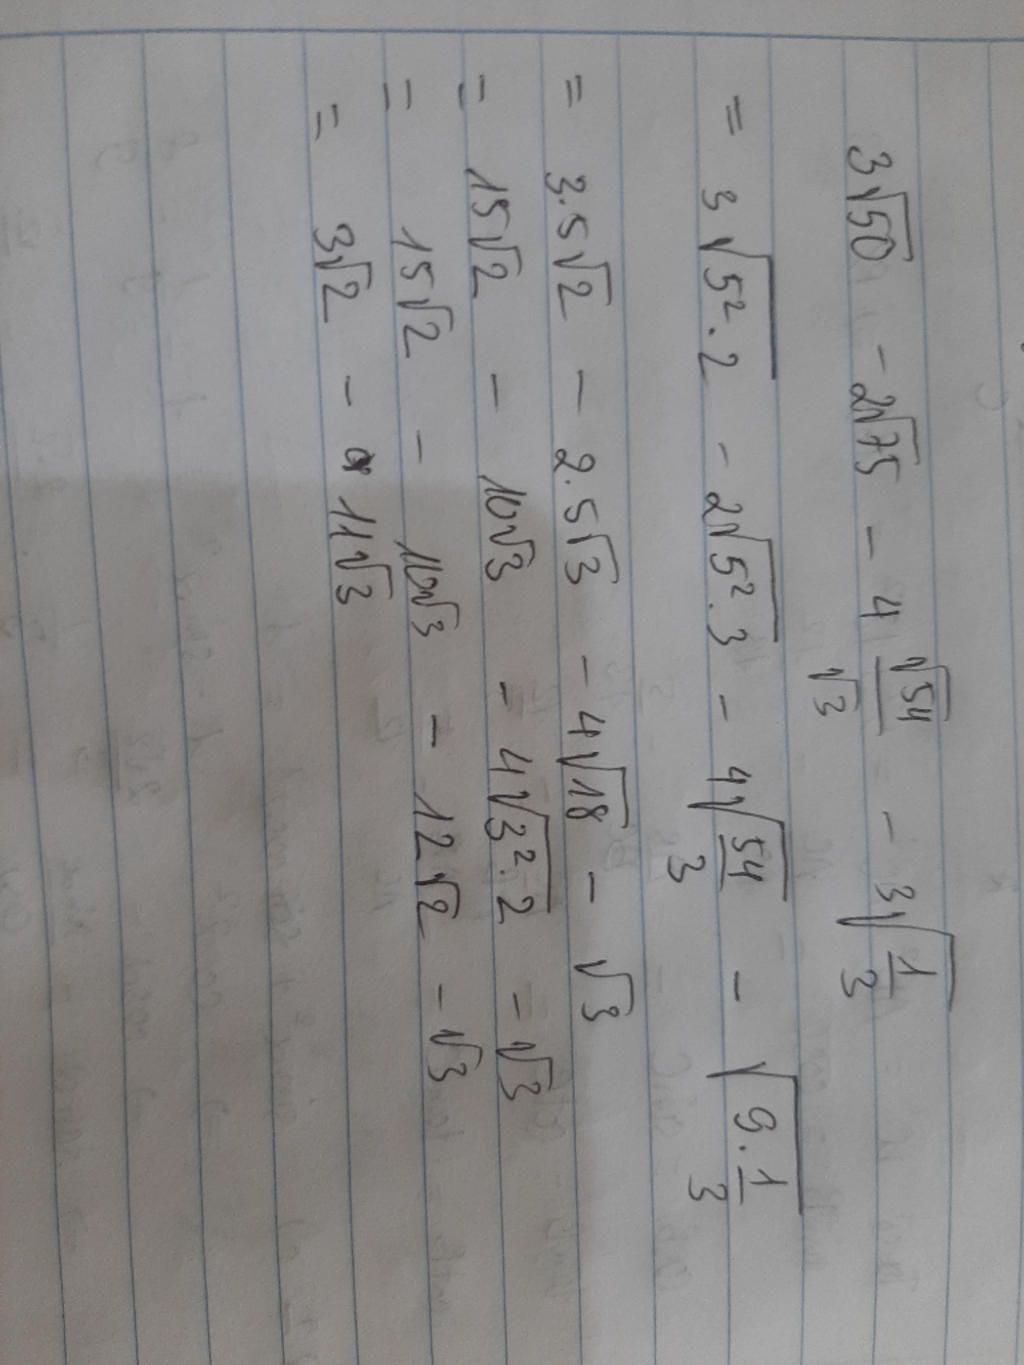 3√50 - 2√75 - 4 √54/√3 - 3√(1/3)
= 3√(5².2) - 2√(5².3) - 4√(54/3) - √(9.1/3)
= 3.5√2 - 2.5√3 - 4√18 - √3
= 15√2 - 10√3 - 4√(3².2) - √3
= 15√2 - 10√3 - 12√2 - √3
= 3√2 - 11√3